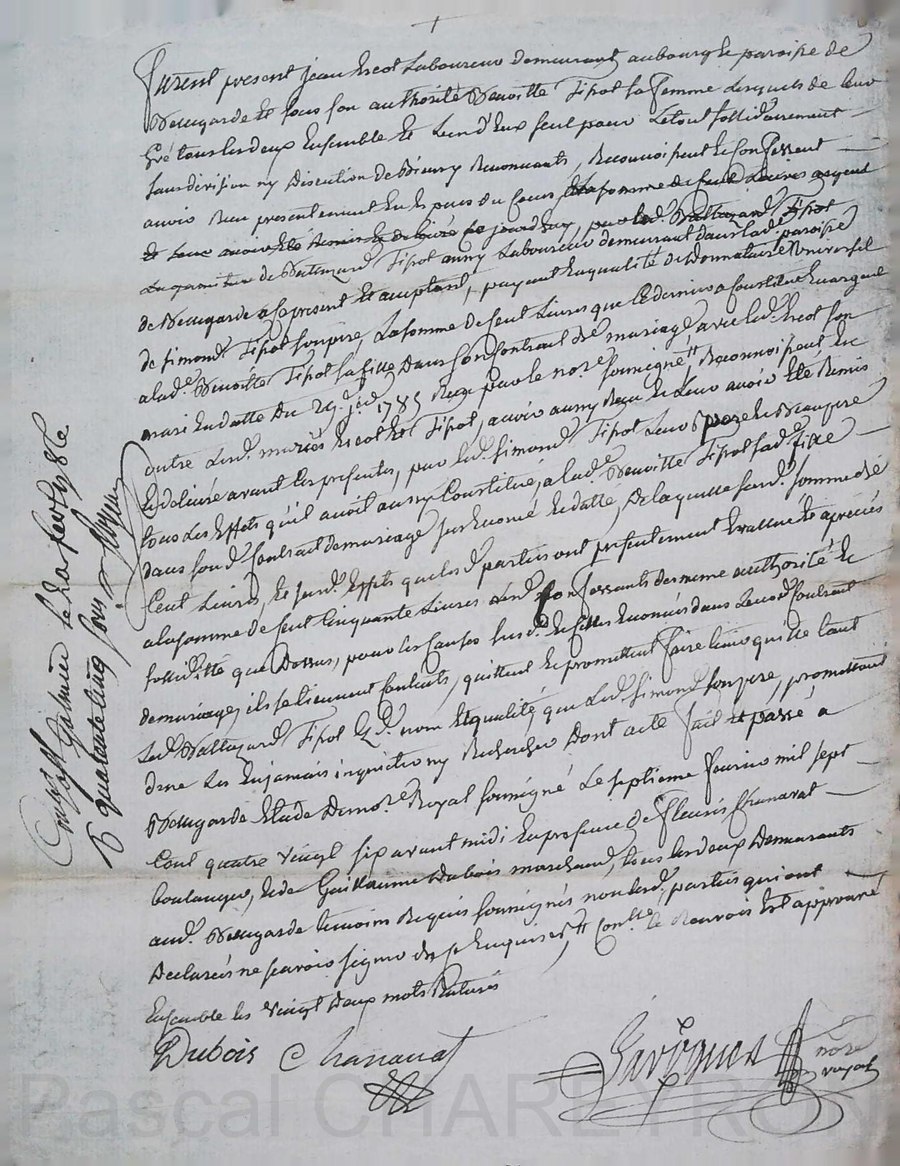 furent present jean Escot Laboureur demeurant au bourg et paroisse de
Beuregarde et sous son authorité Benoitte Tipot sa femme Lesquels de leur
gré tous Les deux Ensemble et L'un d'Eux seul pour Le tout sollidairement
sans division ny discution de Bien y Renonceants, Reconnoissent et Confessent
avoir Reçu presentement en Espèces du Cours La somme de Cent Livres argent
et Leur avoir été Remis et délivré ce jourd'huy, par led. Baltazard Tipot
de Baltazard Tipot aussy Laboureur demeurant dans lad. paroisse
de Beuregarde à ce present et acceptant, payant En qualité de Donnataire Universel
de Simond Tipot son pere, La somme de Cent Livres que Ce dernier a Constitué En argent
a lad. Benoitte Tipot sa fille Dans son Contrat de mariage avec led. Escot son
mari En datte du 29 1785 Reçu par le not.re soussigné, Reconnoissent En
outre Lesd. mariés Escot et Tipot, avoir aussy Reçu et Leur avoir Eté Remis
Et délivré avant Les presentes, par led. Simond Tipot Leur pere et Beaupere
tous Les Effets qu'il avoit aussy Constitué, a lad. Benoitte Tipot sad. fille
dans son d. Contrat de mariage sus Enoncé En datte, De laquelle susd. somme de
Cent Livres, et susd. Effets que lesd. parties ont presentement Evallué et apreciés
a la somme de Cent Cinquante Livres Lesd. Confessants de meme authorité et
solliditté que Dessus, pour les Causes susd. Enoncés dans Leur d. Contrat
de mariage, ils se tiennent Contents, quittent et promettent faire tenir quitte tant
Led. Baltazard Tipot nom Et qualité, que Led. Simond Son pere, promettant
de ne Les En jamais inquieter ny Rechercher Dont acte fait et passé à
Beuregarde Etude Du not.re Royal soussigné Le septieme fevrier mil sept
Cent quatre vingt six avant midi En presence de Fleuris Chanavat
boulanger, et de Guillaume Dubois marchand, tous Les deux Demeurants
aud. Beuregarde temoins Requis soussignés non lesd. parties qui ont
Declarés ne scavoir signer de ce Enquises, Le Renvois Est approuvé
Ensemble les vingt Deux mots Raturés
Dubois Chanavat
not.re royal
le 20 fev. 1786